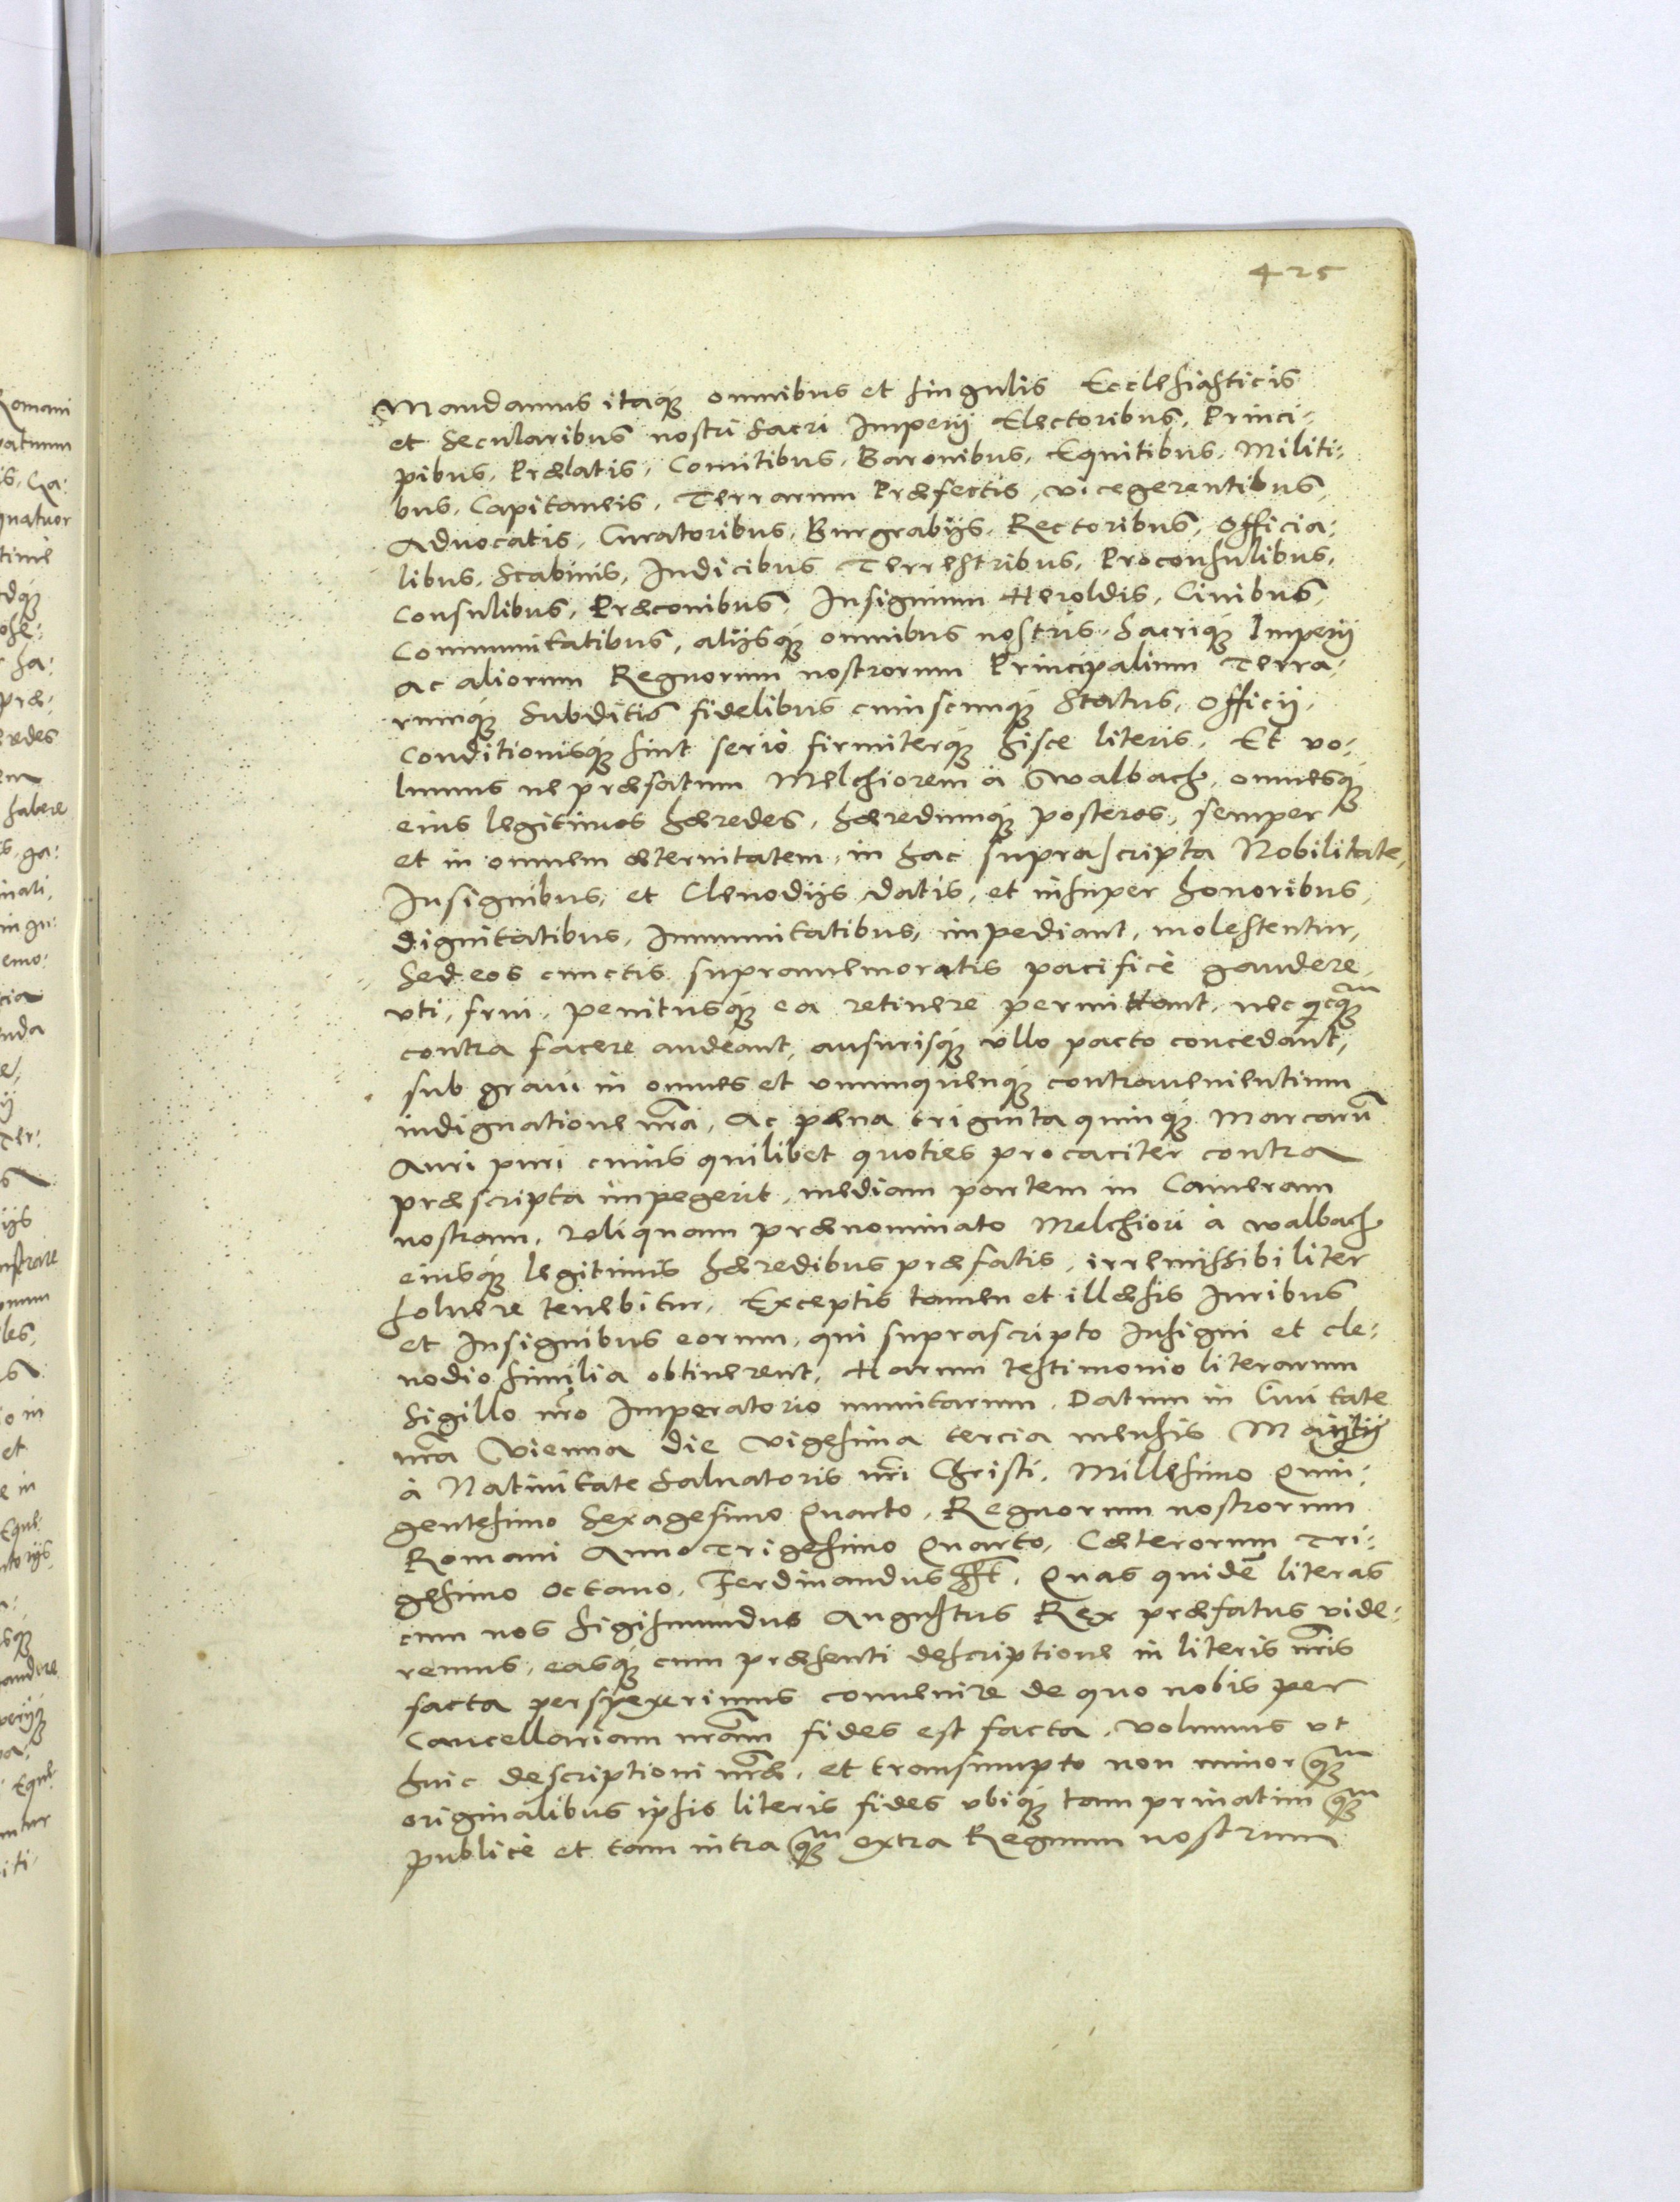 425
Mandamus itaq́ꝫ omnibus et singulis Ecclesiasticis
et Secularibus nostri Sacri Imperij Electoribus, Princi-
pibus, Prælatis, Comitibus, Baronibus, Equitibus, Militi-
bus, Capitaneis, Terrarum Præfectis, vicegerentibus,
Aduocatis, Curatoribus, Burgrabijs, Rectoribus, Officia-
libus, Scabinis, Iudicibus Terrestribus, Proconsulibus,
Consulibus, Præconibus, Insignium Heroldis, Ciuibus,
Communitatibus, alijsq́ꝫ omnibus nostris, Sacriq́ꝫ Imperij
ac aliorum Regnorum nostrorum Principalium Terra-
rumq́ꝫ Subditis fidelibus cuiuscunq́ꝫ Status, Officij,
Conditionisq́ꝫ sint serio firmiterq́ꝫ hisce literis, Et vo-
lumus ne præfatum Melchiorem à walbach, omnesq́ꝫ
eius legitimos hæredes, hæredumq́ꝫ posteros, semper
et in omnem æternitatem, in hac suprascripta Nobilitate,
Insignibus, et Clenodijs datis, et insuper honoribus,
dignitatibus, Immunitatibus, impediant, molestentur,
Sed eos cunctis supramemoratis pacificè gaudere,
vti, frui, penitusq́ꝫ ea retinere permittant, nec qͥcq̄ꝫ
contra facere audeant, ausurisq́ꝫ vllo pacto concedant,
sub graui in omnes et vnumquenq́ꝫ contrauenientium
indignatione nr̄a, Ac pœna triginta quinq́ꝫ Marcarū
Auri puri cuius quilibet quoties procaciter contra
præscripta impegerit, mediam partem in Cameram
nostram, reliquam prænominato Melchiori à walbach
eiusq́ꝫ legitimis hæredibus præfatis, irremissibiliter
soluere tenebitur, Exceptis tamen et illæsis Iuribus
et Insignibus eorum, qui suprascripto Insigni et cle-
nodio similia obtinerent, Harum testimonio literarum
Sigillo nr̄o Imperatorio munitarum. Datum in Ciuitate
nr̄a Vienna die vigesima tercia mensis
à Natiuitate Saluatoris nr̄i Christi, Millesimo Quin-
gentesimo Sexagesimo Quarto, Regnorum nostrorum
Romani Anno Trigesimo Quarto, Cæterorum Tri-
gesimo Octauo, Ferdinandus Quas quidē literas
cum nos Sigismundus Augustus Rex præfatus vide-
remus, easq́ꝫ cum præsenti descriptione in literis nr̄is
facta perspexerimus conuenire de quo nobis per
Cancellariam nr̄am fides est facta, volumus vt
huic descriptioni nr̄æ, et transumpto non minor q̄ꝫ
originalibus ipsis literis fides vbiq́ꝫ tam priuatim q̄ꝫ
publicè et tam intra q̄ꝫ extra Regnum nostrum